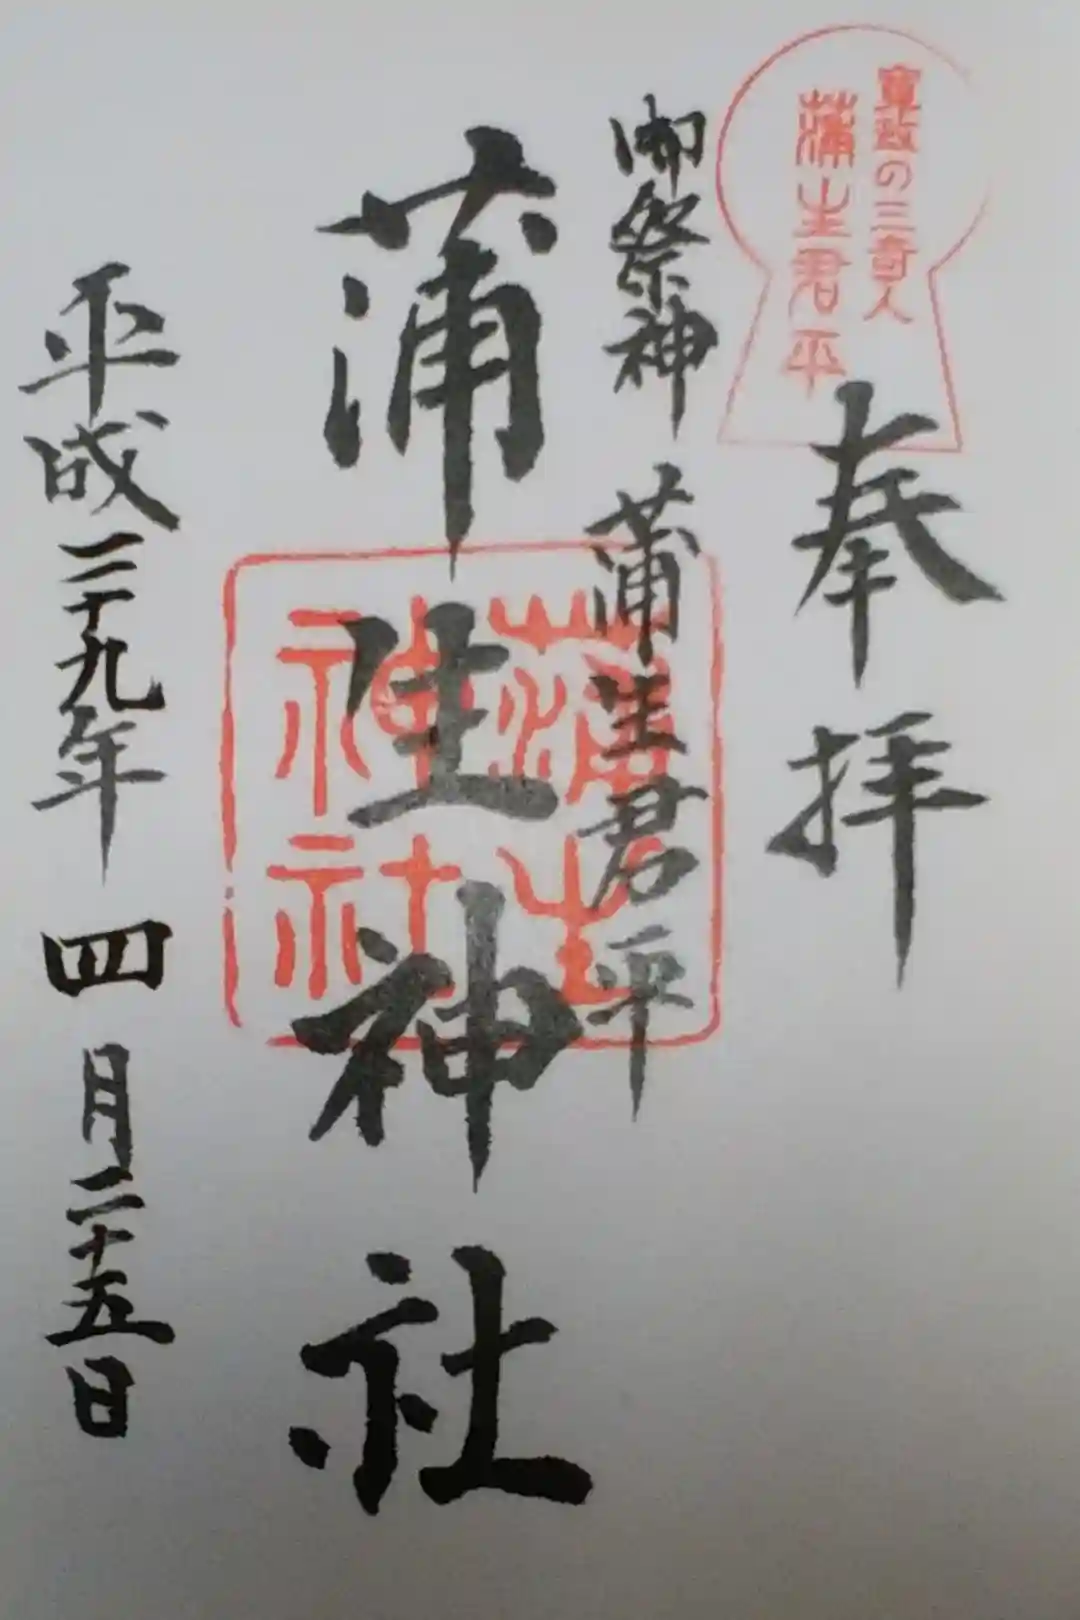 寛政の三奇人
蒲生君平
奉拝
御祭神 蒲生君平
蒲生神社
蒲生
神社
平成二十九年 四月二十五日